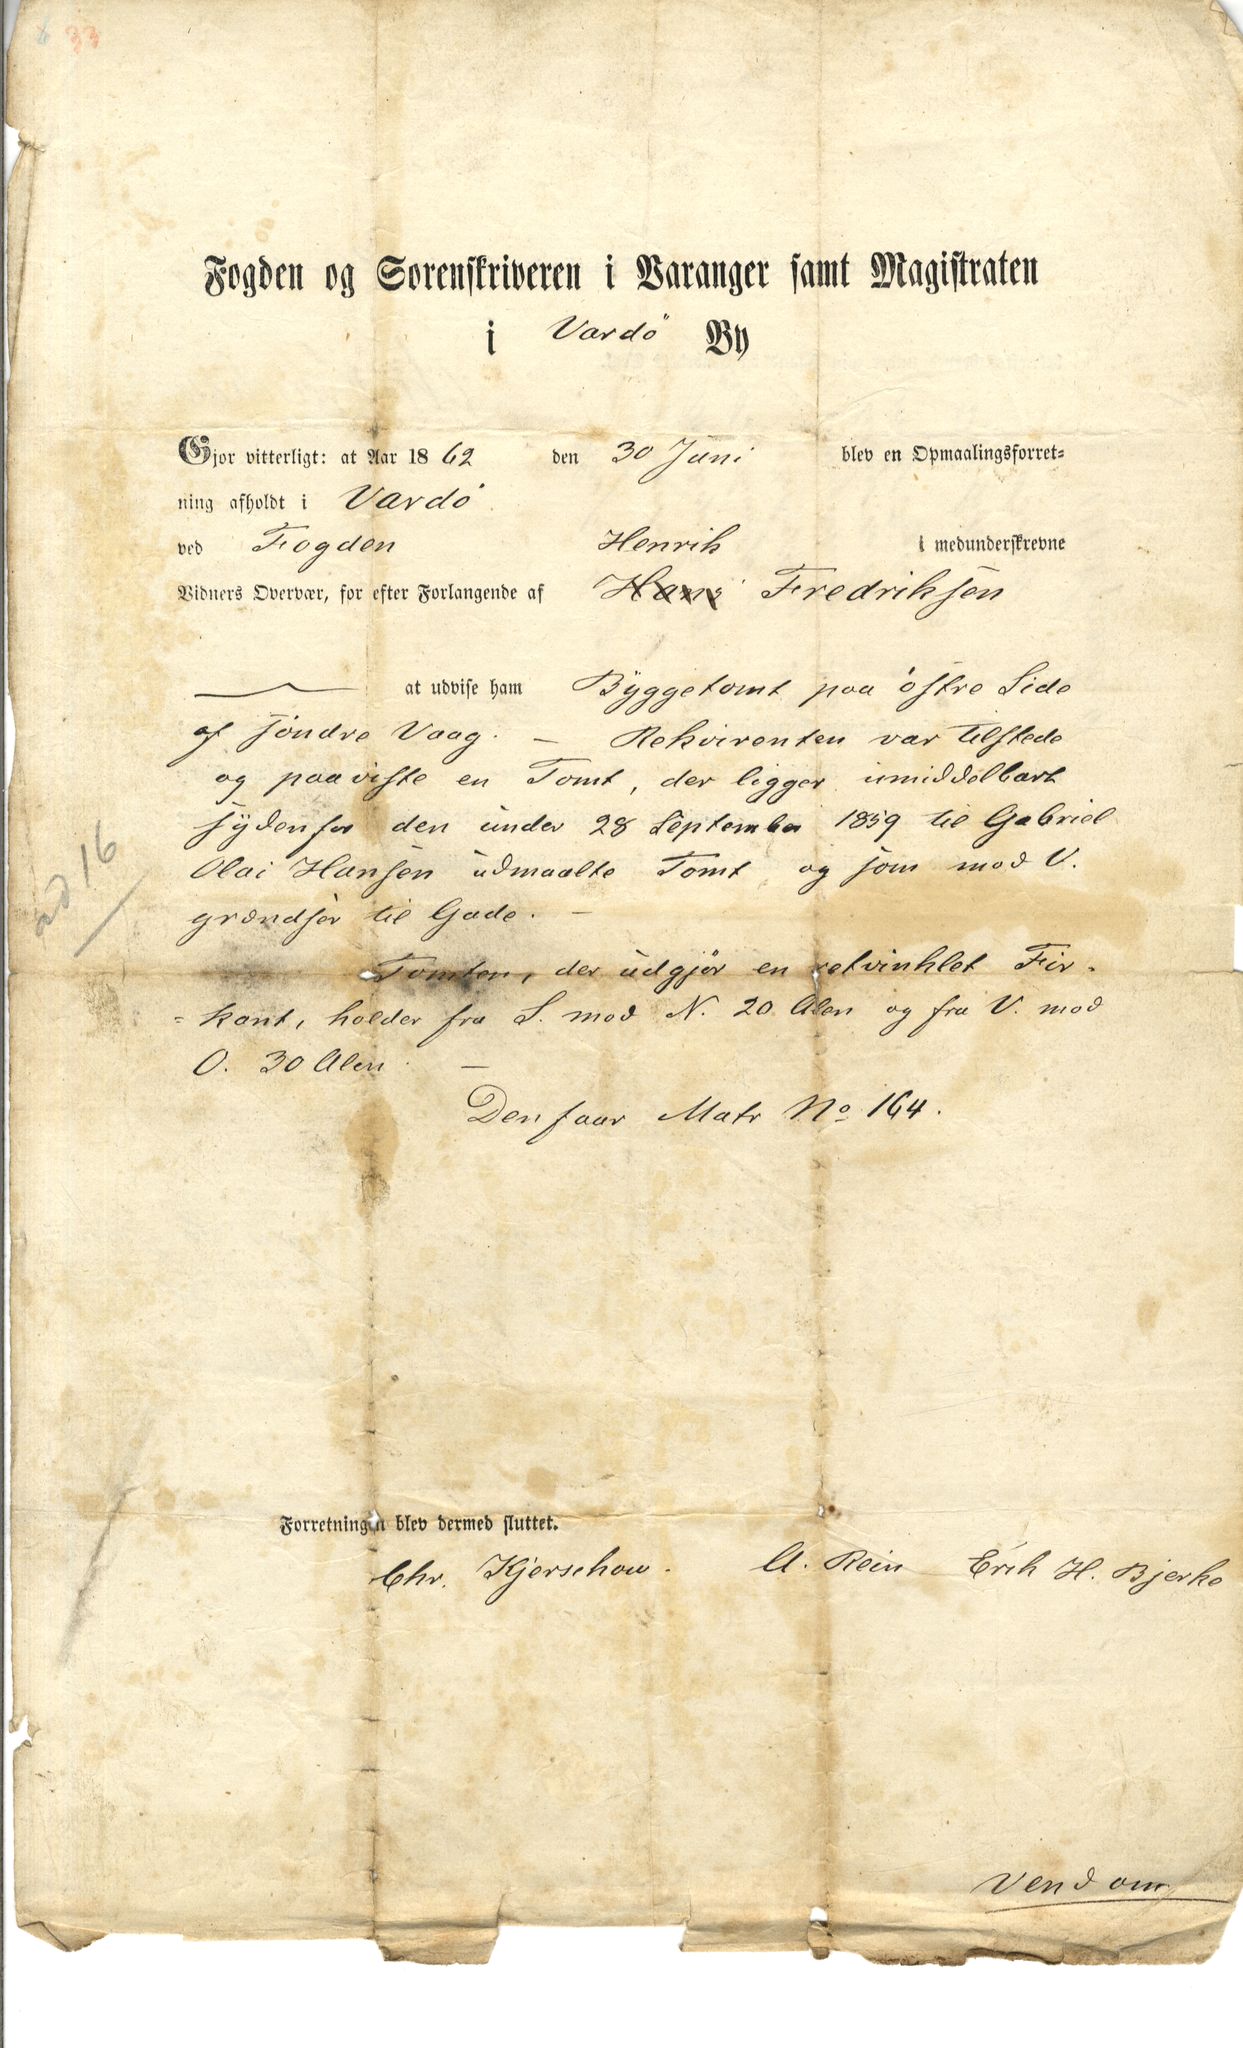 33
Fogden og Sorenskriveren i Varanger samt Magistraten
i Vardö By
Gjor vitterligt: at Aar 1862 den 30 Juni blev en Opmaalingsforret-
ning afholdt i Vardö
ved Fogden i medunderskrevne
Henrik
Vidners Overvær, for efter Forlangende af Hans Fredriksen
at udvise ham Byggetomt paa östre Side
af söndre Vaag. — Rekvirenten var tilstede
og paaviste en Tomt, der ligger umiddelbart
sydenfor den under 28 September 1859 til Gabriel
Olai Hansen udmaalte Tomt og som mod V.
grændser til Gade. —
ad 16
Tomten, der udgjör en retvinklet Fir-
=kant, holder fra S. mod N. 20 Alen og fra V. mod
O. 30 Alen. —
Den faar Matr No 164.
Forretningen blev dermed sluttet.
Chr. Kjerschow. A. Rein Erik H. Bjerke
Vend om